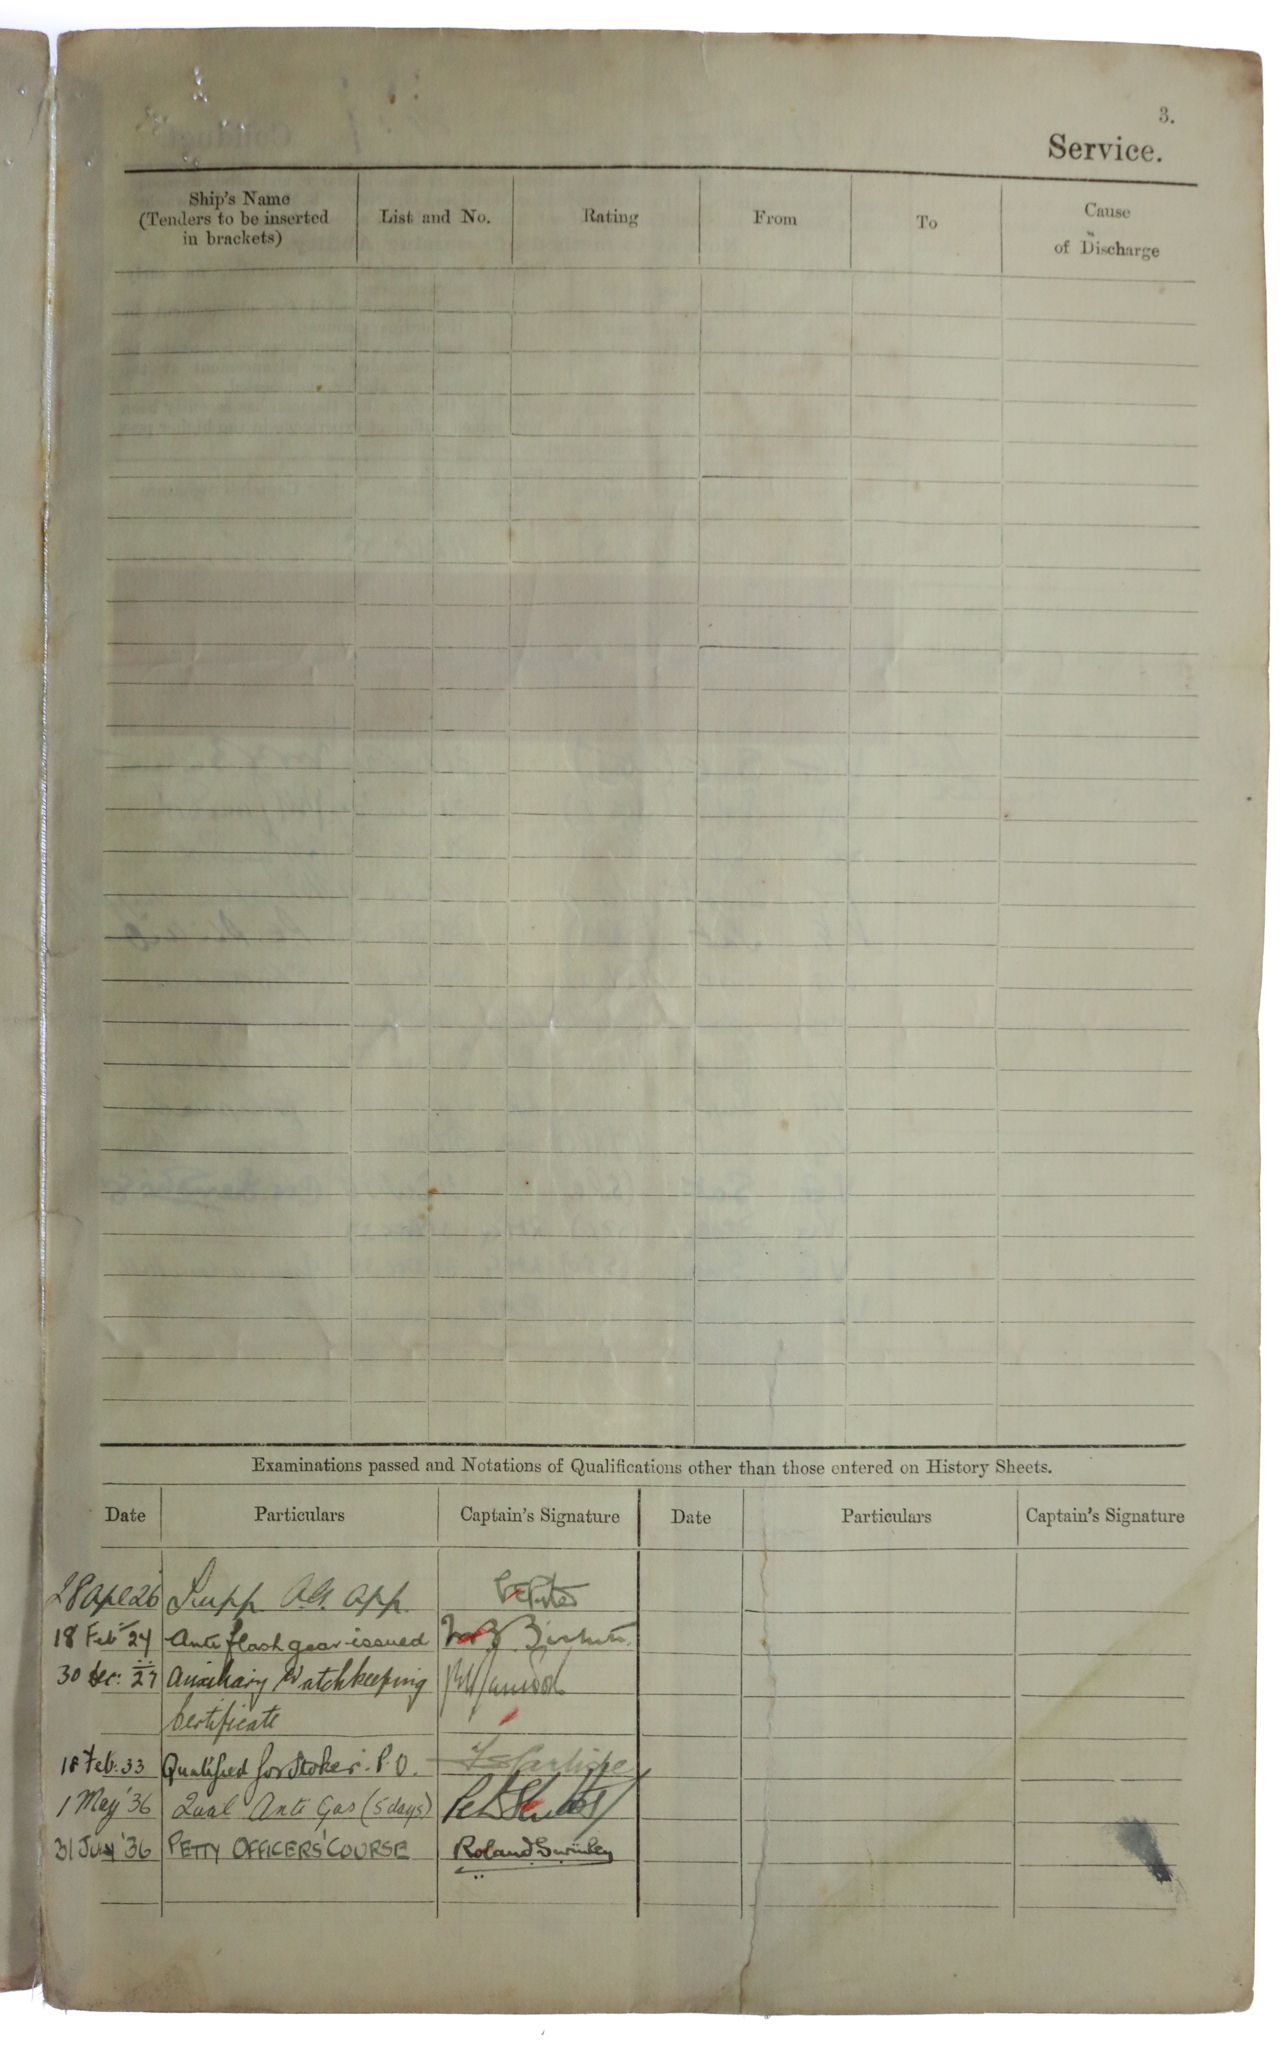 3.
Service.
Ship's Name
(Tenders to be inserted
in brackets)
List and No.
Rating
From
To
Cause
of Discharge
Examinations passed and Notations of Qualifications other than those entered on History Sheets.
Date Particulars Captain's Signature Date Particulars Captain's Signature
28 Apl 26 Supp. A.G. app.
18 Feb 27 Anti flash gear issued
30 Dec: 27 Auxiliary Watchkeeping
Certificate
18 Feb: 33 Qualified for Stoker P.O.
1 May '36 Qual Anti Gas (5 days)
31 July '36 PETTY OFFICERS' COURSE Roland Swinley